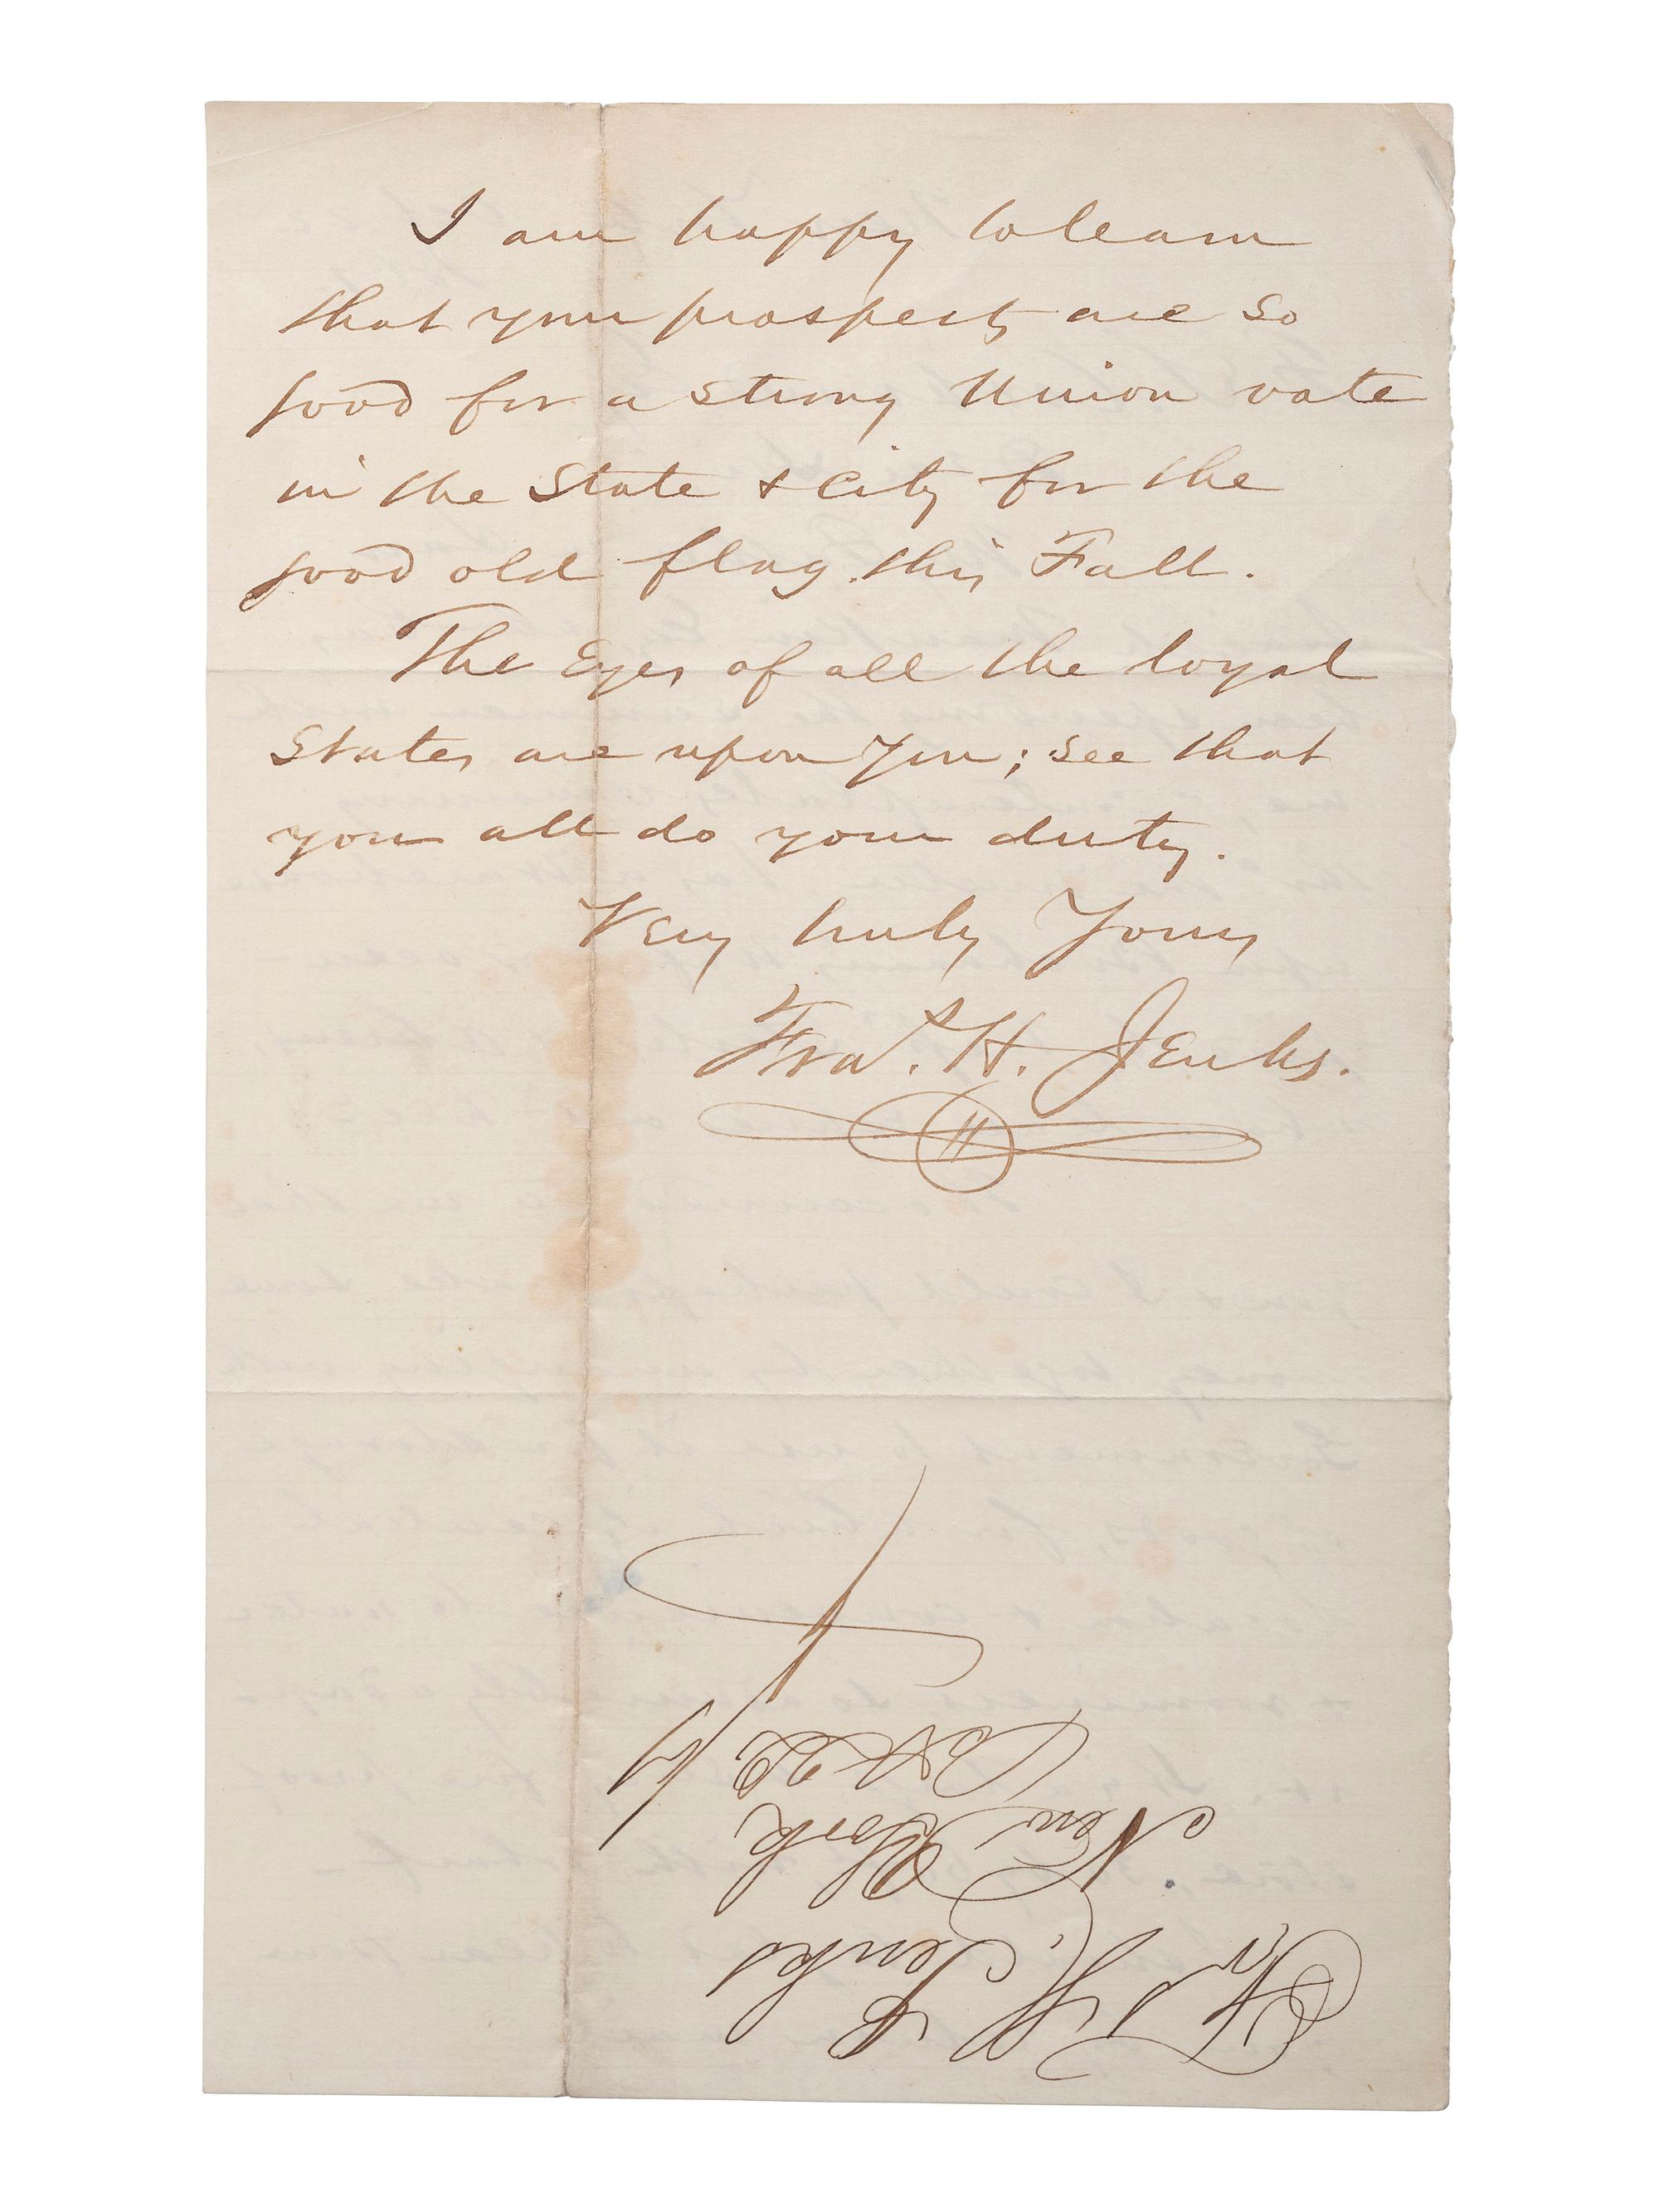 I am happy to learn
that your prospects are so
good for a strong Union vote
in the State & City for the
good old flag this Fall.
The Eyes of all the loyal
States are upon you; see that
you all do your duty.
Very truly Yours
Fra.s H. Jenks.
Fr H. Jenks
New York
Oct 22